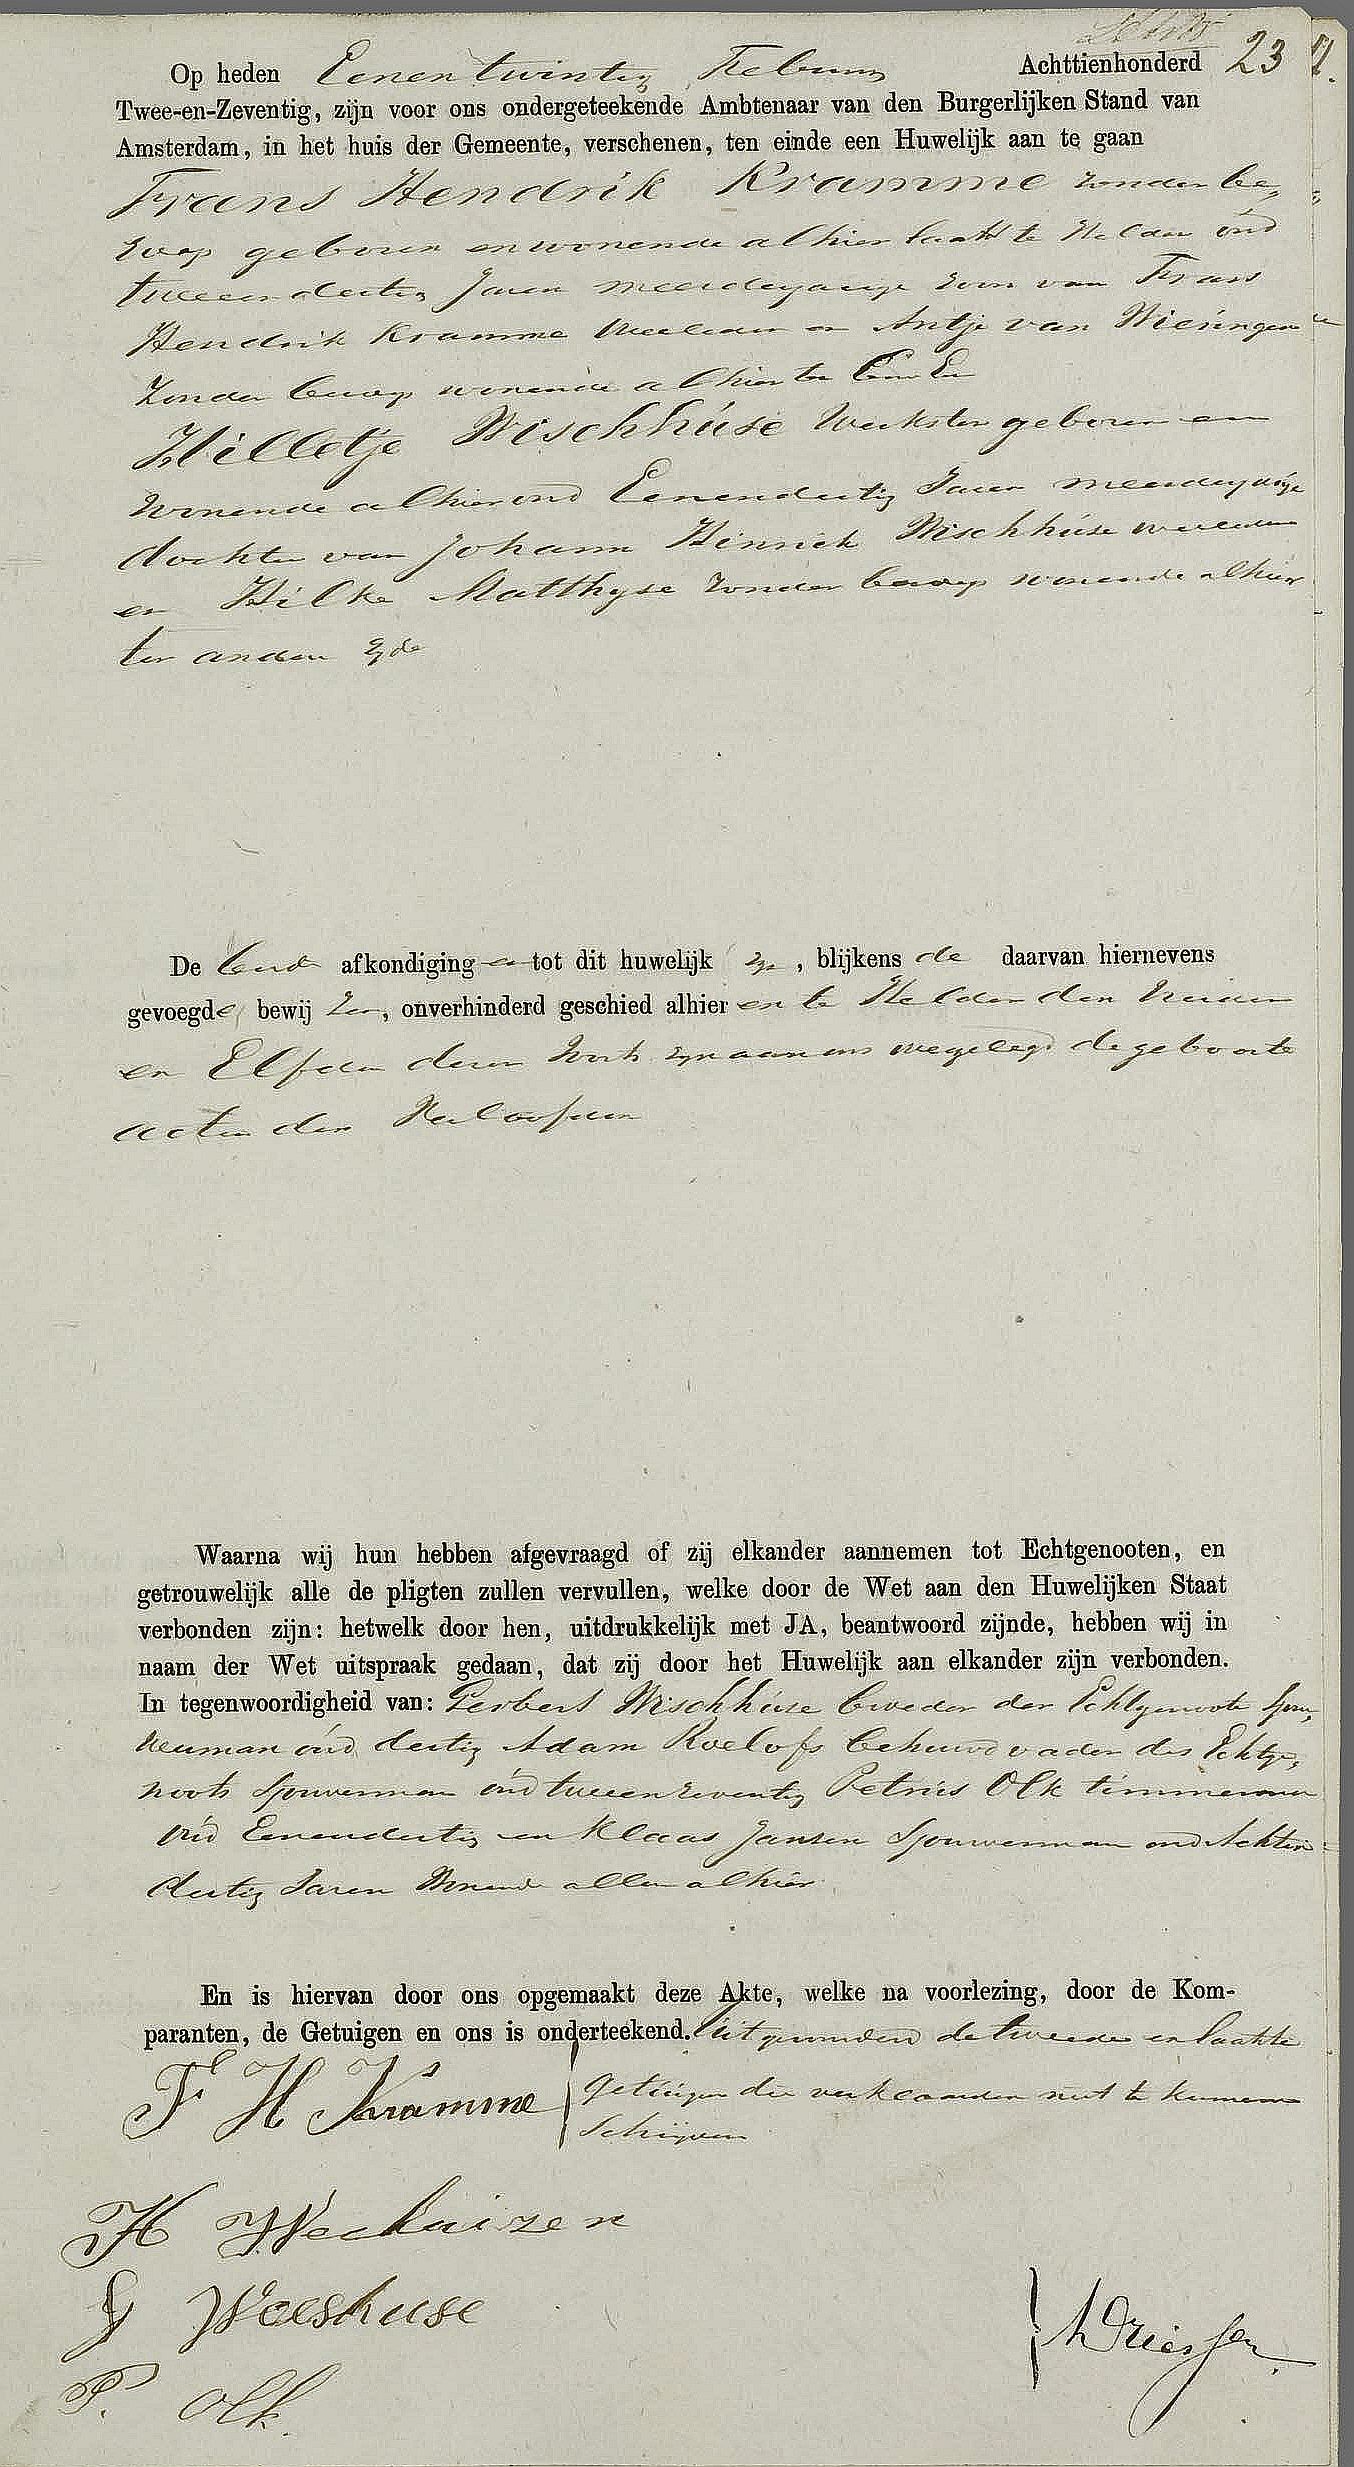 23
Op heden Eenentwintig Februarij Achttienhonderd
Twee-en-Zeventig, zijn voor ons ondergeteekende Ambtenaar van den Burgerlijken Stand van
Amsterdam, in het huis der Gemeente, verschenen, ten einde een Huwelijk aan te gaan
Frans Hendrik Kramme zonder be„
roep geboren en wonende alhier laatst te Helder oud
tweeendertig Jaren meerderjarige zoon van Frans
Hendrik Kramme overleden en Antje van Wieringen
Zonder beroep wonende alhier ter Eene En
Hilletje Wischhúse Werkster geboren en
wonende alhier oud Eenendertig Jaren meerderjarige
dochter van Johann Hinrich Wischhúse overleden
en Hilke Matthyse zonder beroep wonende alhier
ter andere zyde
De beide afkondiging en tot dit huwelijk zyn, blijkens de daarvan hiernevens
gevoegde bewij zen, onverhinderd geschied alhier en te Helder den Vierden
en Elfden dezer Voorts zyn aan ons overgelegd de geboorte
acten der Verloofden
Waarna wij hun hebben afgevraagd of zij elkander aannemen tot Echtgenooten, en
getrouwelijk alle de pligten zullen vervullen, welke door de Wet aan den Huwelijken Staat
verbonden zijn: hetwelk door hen, uitdrukkelijk met JA, beantwoord zijnde, hebben wij in
naam der Wet uitspraak gedaan, dat zij door het Huwelijk aan elkander zijn verbonden.
In tegenwoordigheid van: Gerbert Wischhúse broeder der Echtgenoote
oud dertig Adam Roelofs behuwdvader des Echtge„
noots Sjouwerman oud tweeenzeventig Petrus Olk timmerman
oud Eenendertig en Klaas Jansen Sjouwerman oud Achten
dertig Jaren Wonende allen alhier
En is hiervan door ons opgemaakt deze Akte, welke na voorlezing, door de Kom-
paranten, de Getuigen en ons is onderteekend. Uitgezonderd de tweede en laatste
getúigen die verklaarden niet te kunnen
Schrijven
F H Kramme
H Weskuizen
G Weeskuse
P. Olk.
ADriessen